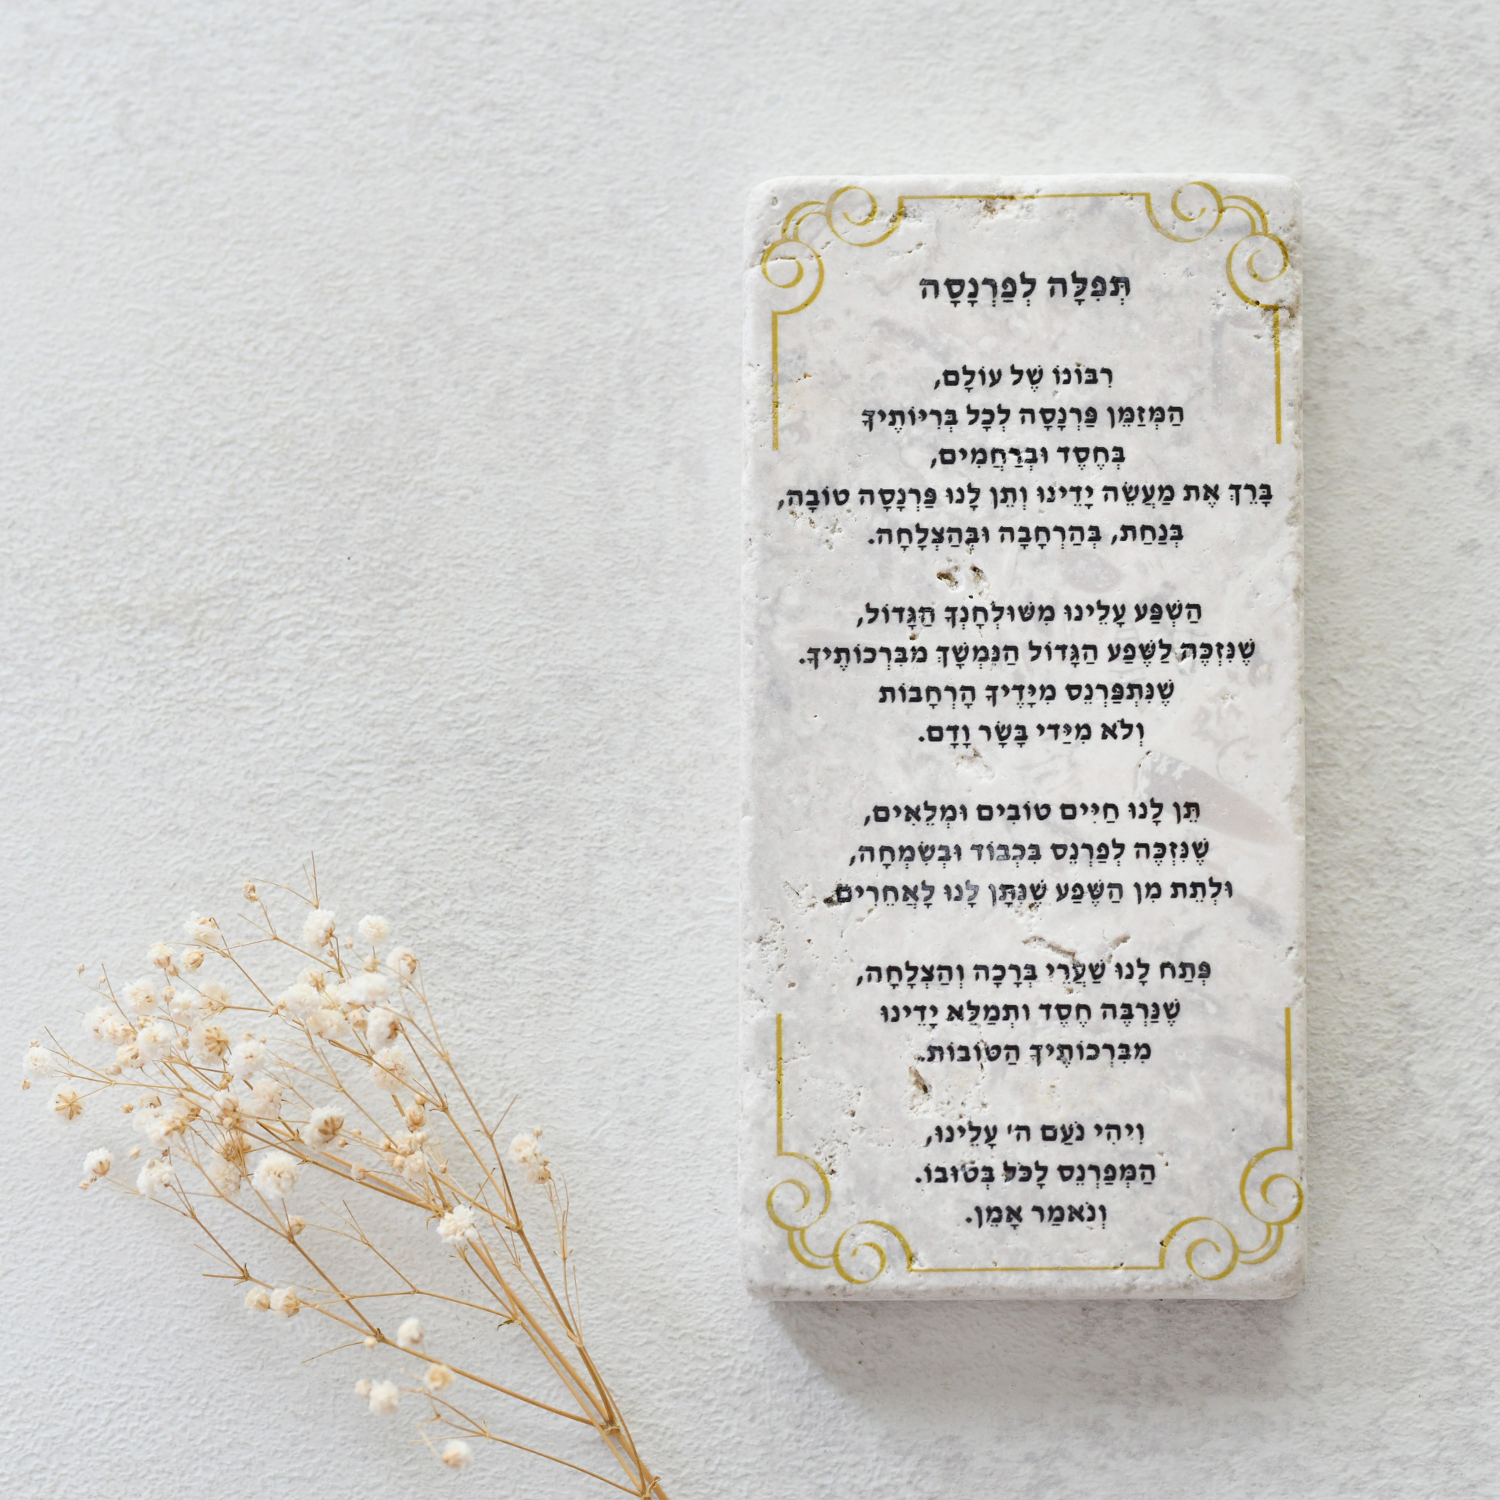 תְּפִלָּה לְפַרְנָסָה
רִבּוֹנוֹ שֶׁל עוֹלָם,
הַמְּזַמֵּן פַּרְנָסָה לְכָל בְּרִיּוֹתֶיךָ
בְּחֶסֶד וּבְרַחֲמִים,
בָּרֵךְ אֶת מַעֲשֵׂה יָדֵינוּ וְתֵן לָנוּ פַּרְנָסָה טוֹבָה,
בְּנַחַת, בְּהַרְחָבָה וּבְהַצְלָחָה.
הַשְׁפַּע עָלֵינוּ מִשּׁוּלְחָנְךָ הַגָּדוֹל,
שֶׁנִּזְכֶּה לַשֶּׁפַע הַגָּדוֹל הַנִּמְשָׁךְ מִבִּרְכוֹתֶיךָ.
שֶׁנִּתְפַּרְנֵס מִיָּדֶיךָ הָרְחָבוֹת
וְלֹא מִיַּדי בָּשָׂר וָדָם.
תֵּן לָנוּ חַיִּים טוֹבִים וּמְלֵאִים,
שֶׁנִּזְכֶּה לְפַרְנֵס בִּכְבוֹד וּבְשִׂמְחָה,
וּלְתֵת מִן הַשֶּׁפַע שֶׁנִּתָּן לָנוּ לָאֲחֵרִים.
פְּתַח לָנוּ שַׁעֲרֵי בְּרָכָה וְהַצְלָחָה,
שֶׁנַּרְבֶּה חֶסֶד ותְמַלֵּא יָדֵינוּ
מִבִּרְכוֹתֶיךָ הַטּוֹבוֹת.
וִיהִי נֹעַם ה' עָלֵינוּ,
הַמְּפַרְנֵס לָכֹּל בְּטוּבוֹ.
וְנֹאמַר אָמֵן.